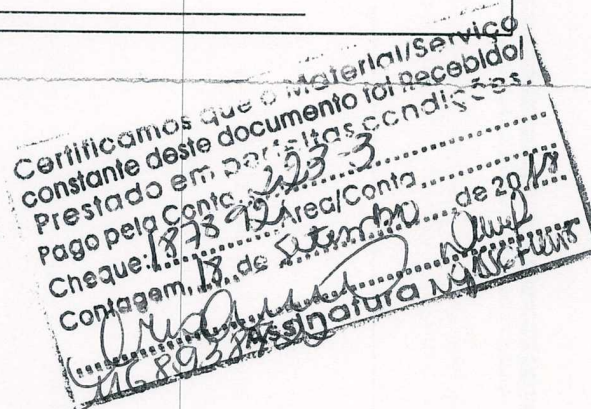 Certificamos que o Material/Serviço
constante deste documento foi Recebido/
Prestado em perfeitas condições.
Pago pela Conta: 223-3
Cheque: 187892 Área/Conta
Contagem, 18 de Setembro de 20
Assinatura